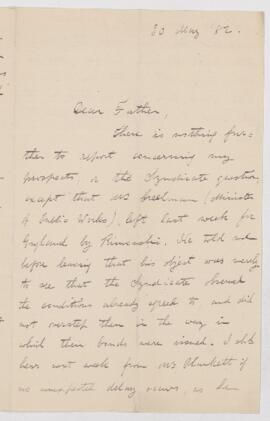 30 May '82.
Dear Father,
There is nothing fur-
ther to report concerning my
prospects, or the Syndicate question,
except that Mr (Minister
of Public Works), left last week for
England by . He told me
before leaving that his object was merely
to see that the Syndicate observed
the conditions already agreed to and did
not overstep them in the way in
which their bonds were issued. I
hear next week from Mr Plunkett if
no unexpected delay occurs, as he